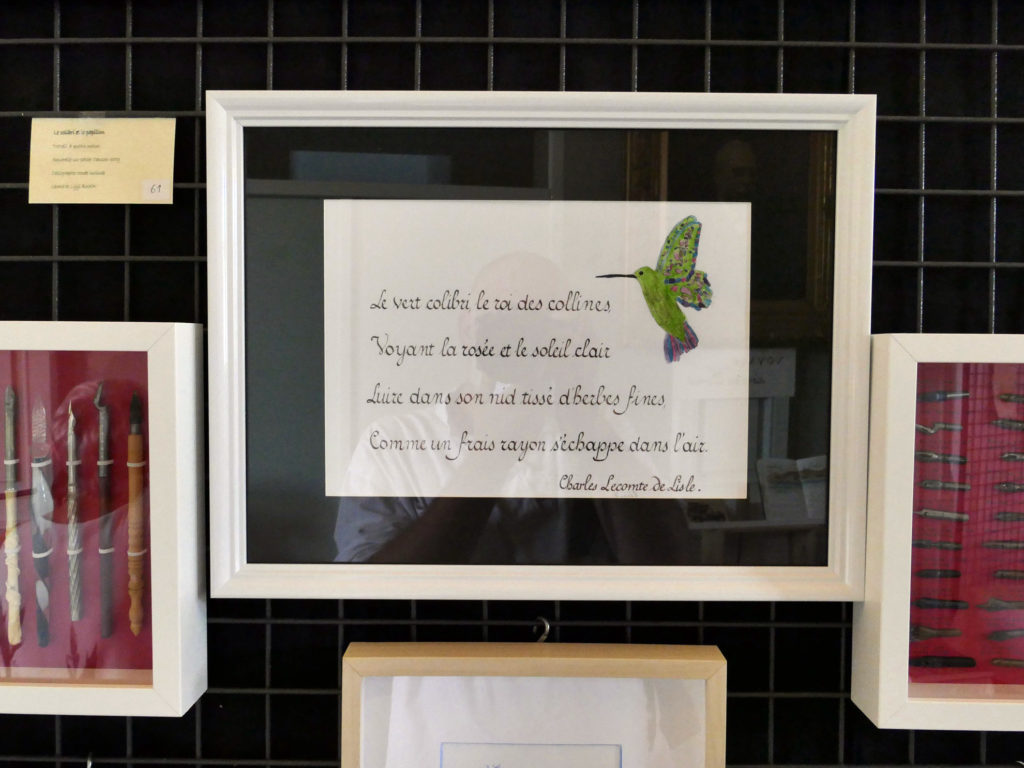 Le colibri et le papillon
61
Le vert colibri le roi des collines,
Voyant la rosée et le soleil clair
Luire dans son nid tissé d'herbes fines,
Comme un frais rayon s'échappe dans l'air.
Charles Lecomte de Lisle.